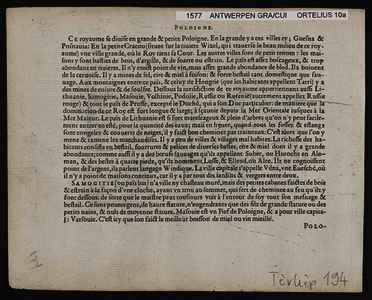 1577 ANTWERPEN GRA/CUI ORTELIUS 10a
POLOIGNE.
CE royaume se divise en grande & petite Poloigne. En la grande y a ces villes cy; Gnesna &
Posnania: En la petite Cracou (seant sur la riviere Wisel, qui traverse le beau milieu de ce roy-
aume) vne ville grande, où le Roy tient sa Cour. Les autres villes sont de petit renom: les mai-
sons y sont basties de bois, d'argille, & de fourre ou estrain. Le païs est assez boscageux, & trop
abondant en rivieres. Il n'y croist point de vin, mais assez grande abondance de bled. Ils boivent
de la cervoise. Il y a mines de sel, cire & miel à foison: & force bestail tant domestique que sau-
vage. Aux montaignes entre ce païs, & celuy de Hongrie (que les habitans appellent Tatri) y a
des mines de cuivre & de soulfre. Dessoubs la iurisdiction de ce royaume appartiennent aussi Li-
thuanie, Samogitie, Masovie, Volhinie, Podolie, Russie
rouge) & tout le païs de Prusse, excepté le Duché, qui a son Duc particulier: de maniere que la
domination de ce Roy est fort longue & large; s'estende depuis la Mer Oceane iusques à la
Mer Maiour. Le païs de Lithuanie est si fort marescageux & plein d'arbres qu'on n'y peut facile-
ment entrer en esté, pour la quantité des eaux; mais en hyver, quand tous les fosses & estangs
sont congelez & couverts de neiges, il y faict bon cheminer par traineaux. C'est alors que l'on y
mene & rameine les marchandises. Il y a peu de villes & villages mal habitez. La richesse des ha-
bitans consiste en bestail, fourrures & pelices de diverses bestes, cire & miel dont il y a grande
abondance; comme aussi il y a des beufs sauvages qu'ils appellent Suber,
man, & des bestes à courte piede, qu'ils nomment Losse, & Ellend, où Alce. Ils ne cognoissent
point de l'argent, ils parlent langage Windique. La ville capitale s'appelle Vilna, vne Evesché, où
il n'y a point de maisons contenues, car il y a par tout des iardins & vergiers entre deux.
SAMOGITIE (ou païs bas) n'a ville ny chasteau muré, mais des petites cabanes faictes de bois
& estrain à la façon d'une cloche, ayant vn trou au sommet, qui sert de cheminee au feu qu'ils y
font dessous: de sorte que le maistre peut tousiours voir à l'entour de soy tout son mesnage &
bestail. Ce sont ieunes gens, de haute stature, n'engendrants que des fils de grande stature ou des
petits nains, & nuls de moyenne stature. Masovie est vn Fief de Poloigne, & a pour ville capita-
le Varsovie. C'est icy que son faict le meilleur boisson de miel ou vin miellé.
POLO-
Térkép 194